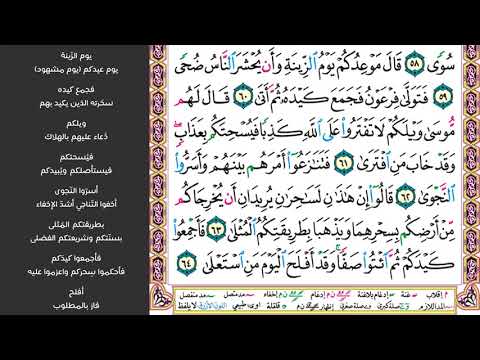 سُوًى ٥٨ قَالَ مَوْعِدُكُمْ يَوْمُ ٱلزِّينَةِ وَأَن يُحْشَرَ ٱلنَّاسُ ضُحًى
٥٩ فَتَوَلَّىٰ فِرْعَوْنُ فَجَمَعَ كَيْدَهُۥ ثُمَّ أَتَىٰ ٦٠ قَالَ لَهُم
مُّوسَىٰ وَيْلَكُمْ لَا تَفْتَرُوا۟ عَلَى ٱللَّهِ كَذِبًا فَيُسْحِتَكُم بِعَذَابٍ
وَقَدْ خَابَ مَنِ ٱفْتَرَىٰ ٦١ فَتَنَٰزَعُوٓا۟ أَمْرَهُم بَيْنَهُمْ وَأَسَرُّوا۟
ٱلنَّجْوَىٰ ٦٢ قَالُوٓا۟ إِنْ هَٰذَٰنِ لَسَٰحِرَٰنِ يُرِيدَانِ أَن يُخْرِجَاكُم
مِّنْ أَرْضِكُم بِسِحْرِهِمَا وَيَذْهَبَا بِطَرِيقَتِكُمُ ٱلْمُثْلَىٰ ٦٣ فَأَجْمِعُوا۟
كَيْدَكُمْ ثُمَّ ٱئْتُوا۟ صَفًّا وَقَدْ أَفْلَحَ ٱلْيَوْمَ مَنِ ٱسْتَعْلَىٰ ٦٤
يوم الزّينة
يوم عيدكم (يوم مشهود)
فجمع كيده
سَحَرته الذين يكيد بهم
ويلكم
دُعاء عليهم بالهلاك
فيُسحتكم
فيستأصلكم ويُبيدكم
أسرّوا النّجوى
أخفوا التّناجي أشدّ الإخفاء
بطريقتكم المُثلى
بسنّتكم وشريعتكم الفضلى
فأجمعوا كيدكم
فأحكموا سحركم واعزموا عليه
أفلح
فاز بالمطلوب